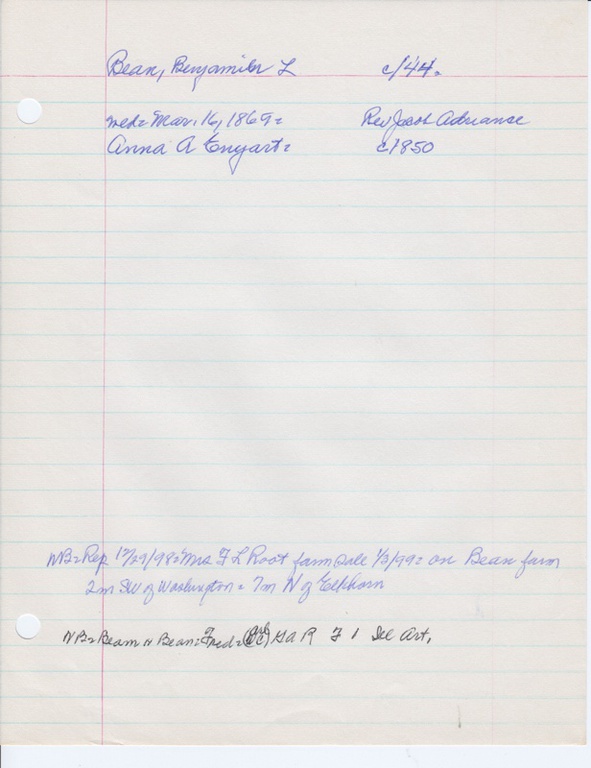 Bean, Benjamin L c/44.
wed = Mar. 16, 1869 = Rev Jacob Adriance
Anna A Enyart = c1850
NB = Rep 12/29/98 = Mrs F L Root farm sale 1/3/99 = on Bean farm
2m SW of Washington = 7m N of Elkhorn
NB = Beam N Bean = Fred = G A R F 1 Ill Art.